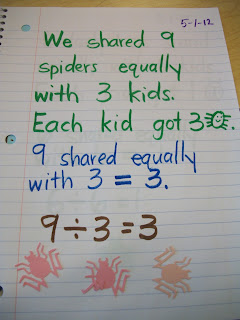 5-1-12
We shared 9
spiders equally
with 3 kids.
Each kid got 3.
9 shared equally
with 3 = 3.
9÷3=3